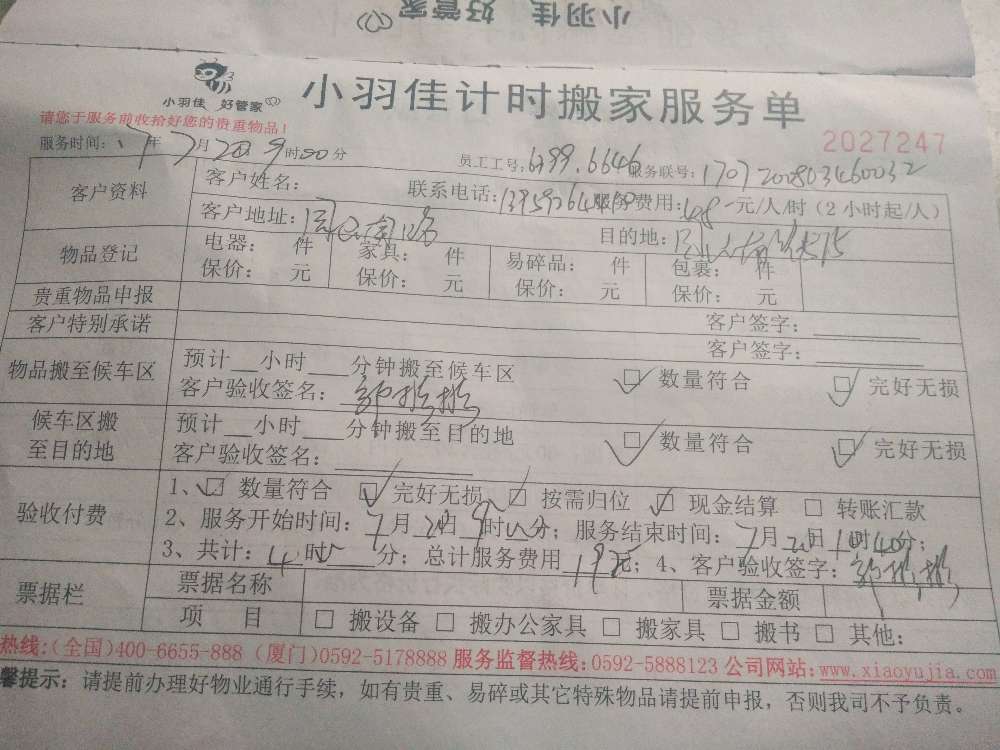 小羽佳 好管家
小羽佳 好管家 小羽佳计时搬家服务单
请您于服务前收拾好您的贵重物品!
2027247
服务时间: 17年7月20日9时00分 员工工号: 6799.6646 服务联号: 1707200803460032
客户资料 客户姓名: 联系电话: 服务费用: 元/人/时 (2小时起/人)
客户地址: 目的地:
物品登记 电器: 件 家具: 件 易碎品: 件 包裹: 件
保价: 元 保价: 元 保价: 元 保价: 元
贵重物品申报 客户签字:
客户特别承诺 客户签字:
物品搬至候车区 预计__小时___分钟搬至候车区 数量符合 完好无损
客户验收签名:
候车区搬至目的地 预计__小时___分钟搬至目的地 数量符合 完好无损
客户验收签名:
验收付费 1、数量符合 完好无损 按需归位 现金结算 转账汇款
2、服务开始时间: 7月20日9时00分; 服务结束时间: 7月20日 时40分;
3、共计: 4时 分; 总计服务费用 元; 4、客户验收签字:
票据栏 票据名称 票据金额
项 目 搬设备 搬办公家具 搬家具 搬书 其他:
热线:(全国)400-6655-888 (厦门)0592-5178888 服务监督热线:0592-5888123 公司网站:www.xiaoyujia.com
馨提示: 请提前办理好物业通行手续, 如有贵重、易碎或其它特殊物品请提前申报, 否则我司不予负责。